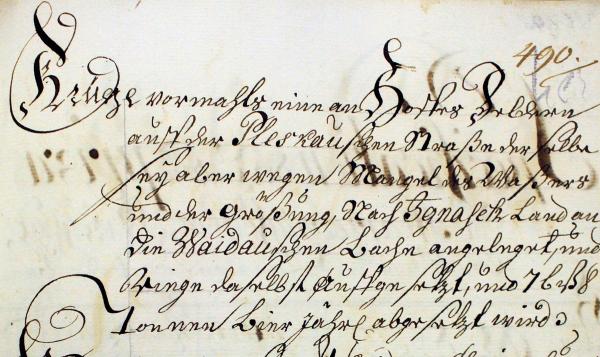 490.
Krüge vormahls eine an Hofes Feldern
auff der Pleskauschen Straße derselbe
sey aber wegen Mangel des Waßers
und der größung, Nach Ignasch Land an
die Waidauschen Bache angeleget, und
Kriege daselbst Aussgesetzt, und 7 biß 8
Tonnen Bier Jährl abgesetzt wird